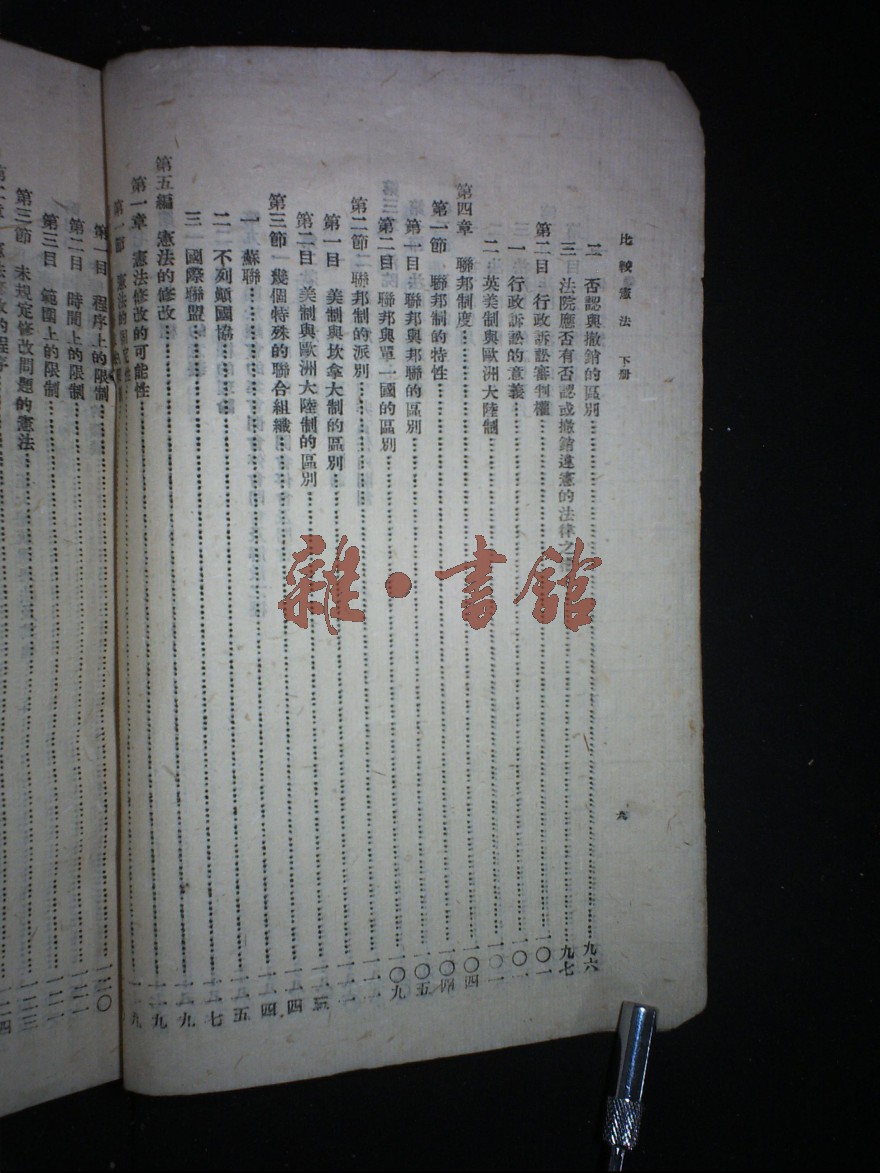 比較憲法 下册
九
二 否認與撤銷的區別……九六
三 法院應否有否認或撤銷違憲的法律之……九七
第二目 行政訴訟審判權……一〇一
一 行政訴訟的意義……一〇一
二 英美制與歐洲大陸制……一〇一
第四章 聯邦制度……一〇四
第一節 聯邦制的特性……一〇四
第一目 聯邦與邦聯的區別……一〇五
第二目 聯邦與單一國的區別……一〇九
第二節 聯邦制的派別……
第一目 美制與坎拿大制的區別……
第二目 美制與歐洲大陸制的區別……
第三節 幾個特殊的聯合組織……一一四
一 蘇聯……一一四
二 不列顛國協……一一五
三 國際聯盟……一一七
第五編 憲法的修改……一一九
第一章 憲法修改的可能性……一一九
第一節 憲法的
第一目 程序上的限制……一二〇
第二目 時間上的限制
第三目 範圍上的限制
第三節 未規定修改問題的憲法
憲法修改的程序
雜·書館